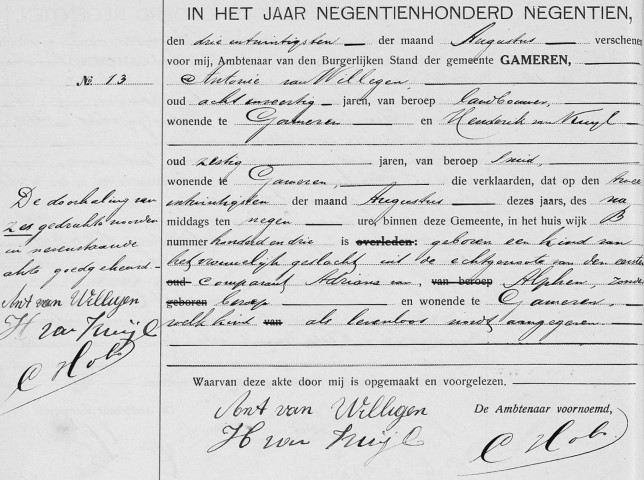 IN HET JAAR NEGENTIENHONDERD NEGENTIEN,
den drie entwintigsten der maand Augustus verschenen
voor mij, Ambtenaar van den Burgerlijken Stand der gemeente GAMEREN,
No. 13
Antonie van Willigen,
oud acht en veertig jaren, van beroep landbouwer,
wonende te Gameren en Hendrik van Kruijl
oud zestig jaren, van beroep smid,
wonende te Gameren, die verklaarden, dat op den twee
entwintigsten der maand Augustus dezes jaars, des na
middags ten negen ure, binnen deze Gemeente, in het huis wijk B
nummer honderd en drie is overleden: geboren een kind van
het vrouwelijk geslacht uit de echtgenoote van den eersten
oud comparant Adriana van, van beroep Alphen, zonder
geboren beroep en wonende te Gameren,
welk kind van als levenloos wordt aangegeven.
De doorhaling van
zes gedrukte woorden
in nevenstaande
akte goedgekeurd.
Ant van Willigen
H van Kruijl
C Hob
Waarvan deze akte door mij is opgemaakt en voorgelezen.
Ant van Willigen
De Ambtenaar voornoemd,
H van Kruijl
C Hob